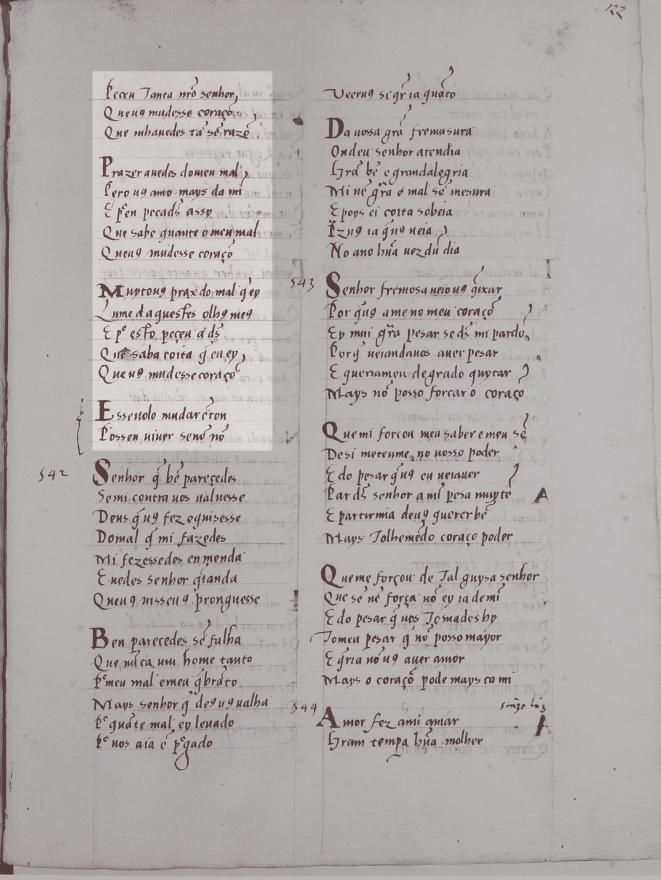 122
Peceu Tanta nr̃o senhor
Que uꝯ mudesse coraçõ
Que mhauedes tã sẽ razõ
Prazer auedes do meu mal
Pero uꝯ amo mays ca mi
E pen peca dš assy
Que sabe quante o meu mal
Que uꝯ mudesse coraçõ
Muytouꝯ praz do mal q̃ ey
Lume daquestes olhꝯ meꝯ
E pº esto peçeu a dš
Que sab a coita q̃ eu ey
Que uꝯ mudesse coraçõ
E sseuolo mudar
Possen viuer se nõ nõ
542
Senhor q̃ bẽ pareçedes
Se mi contra uos ualuesse
Deus q̃ uꝯ fez e quisesse
Do mal q̃ mi fazedes
Mi fezessedes enmenda
E uedes senhor
Que uꝯ uisseuꝯ prouguesse
Ben parecedes sẽ falha
Que nũca uiu home tanto
Pº meu mal e meu q̃brãto
Mays senhor q̃ deꝯ uꝯ ualha
Pº quãte mal ey leuado
Pº uos aia ẽ
Veeruꝯ se q̃r ia quãto
Da uosa grã fremusura
Ondeu senhor atendia
Gram bẽ e grandalegria
Mi uẽ grã mal sẽ mesura
E poys ei coita sobeia
no ano hũa uez du dia
543
Senhor fremosa ueiouꝯ q̃ixar
Por q̃ uꝯ am e no meu coraçõ
Ey mui grã pesar se dš mi pardõ
Porq̃ ueiandauos auer pesar
E queriamen de grado quytar
Mays nõ posso forcar o coraço
Que mi forcou meu saber e meu sẽ
Desi meteume no uosso poder
E do pesar q̃ uꝯ eu uei auer
Par dš senhor a mi pesa muyte
E partirmia deuꝯ querer bẽ
Mays Tolhemẽdo coraço poder
Que me forçou de Tal guysa senhor
Que sẽ nẽ força nõ ey ia de mi
E do pesar q̃ uos Tomades hy
Tomeu pesar q̃ nõ posso mayor
E q̃ria nõ uꝯ auer amor
Mays o coraçõ pode mays ca mi
544
Amor fez a mi amar
Gram tempa hũa molher